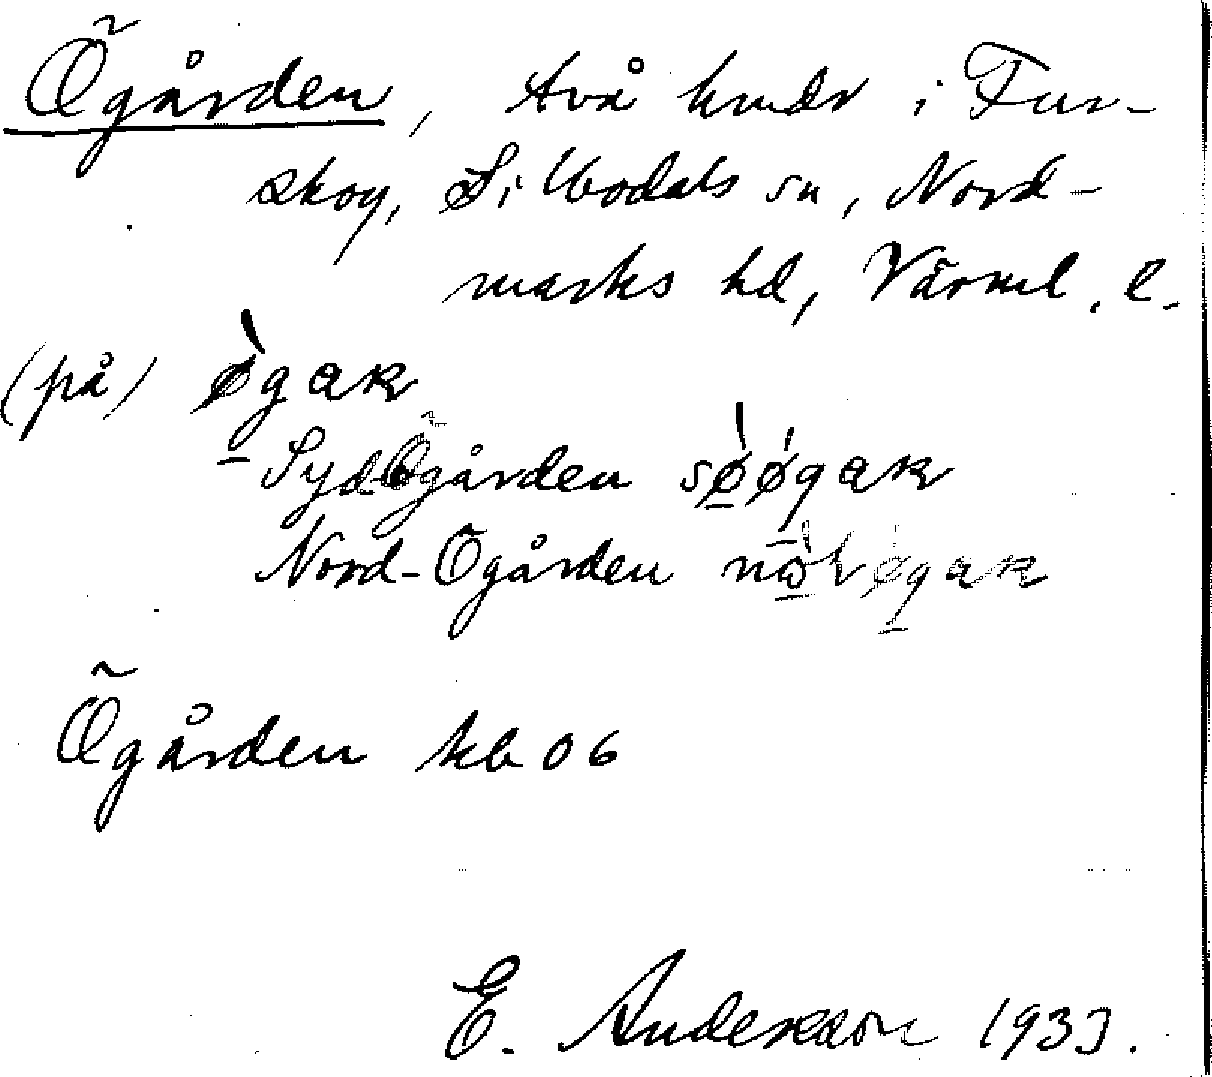 Ögården, två hmdr i Fur-
skog, Silbodals sn, Nord-
marks hd, Värml. l.
(på) ø̀gaʀ
Syd-Ögården sø̀øgaʀ
Nord-Ögården
Ögården kb 06
E. Andersson 1933.